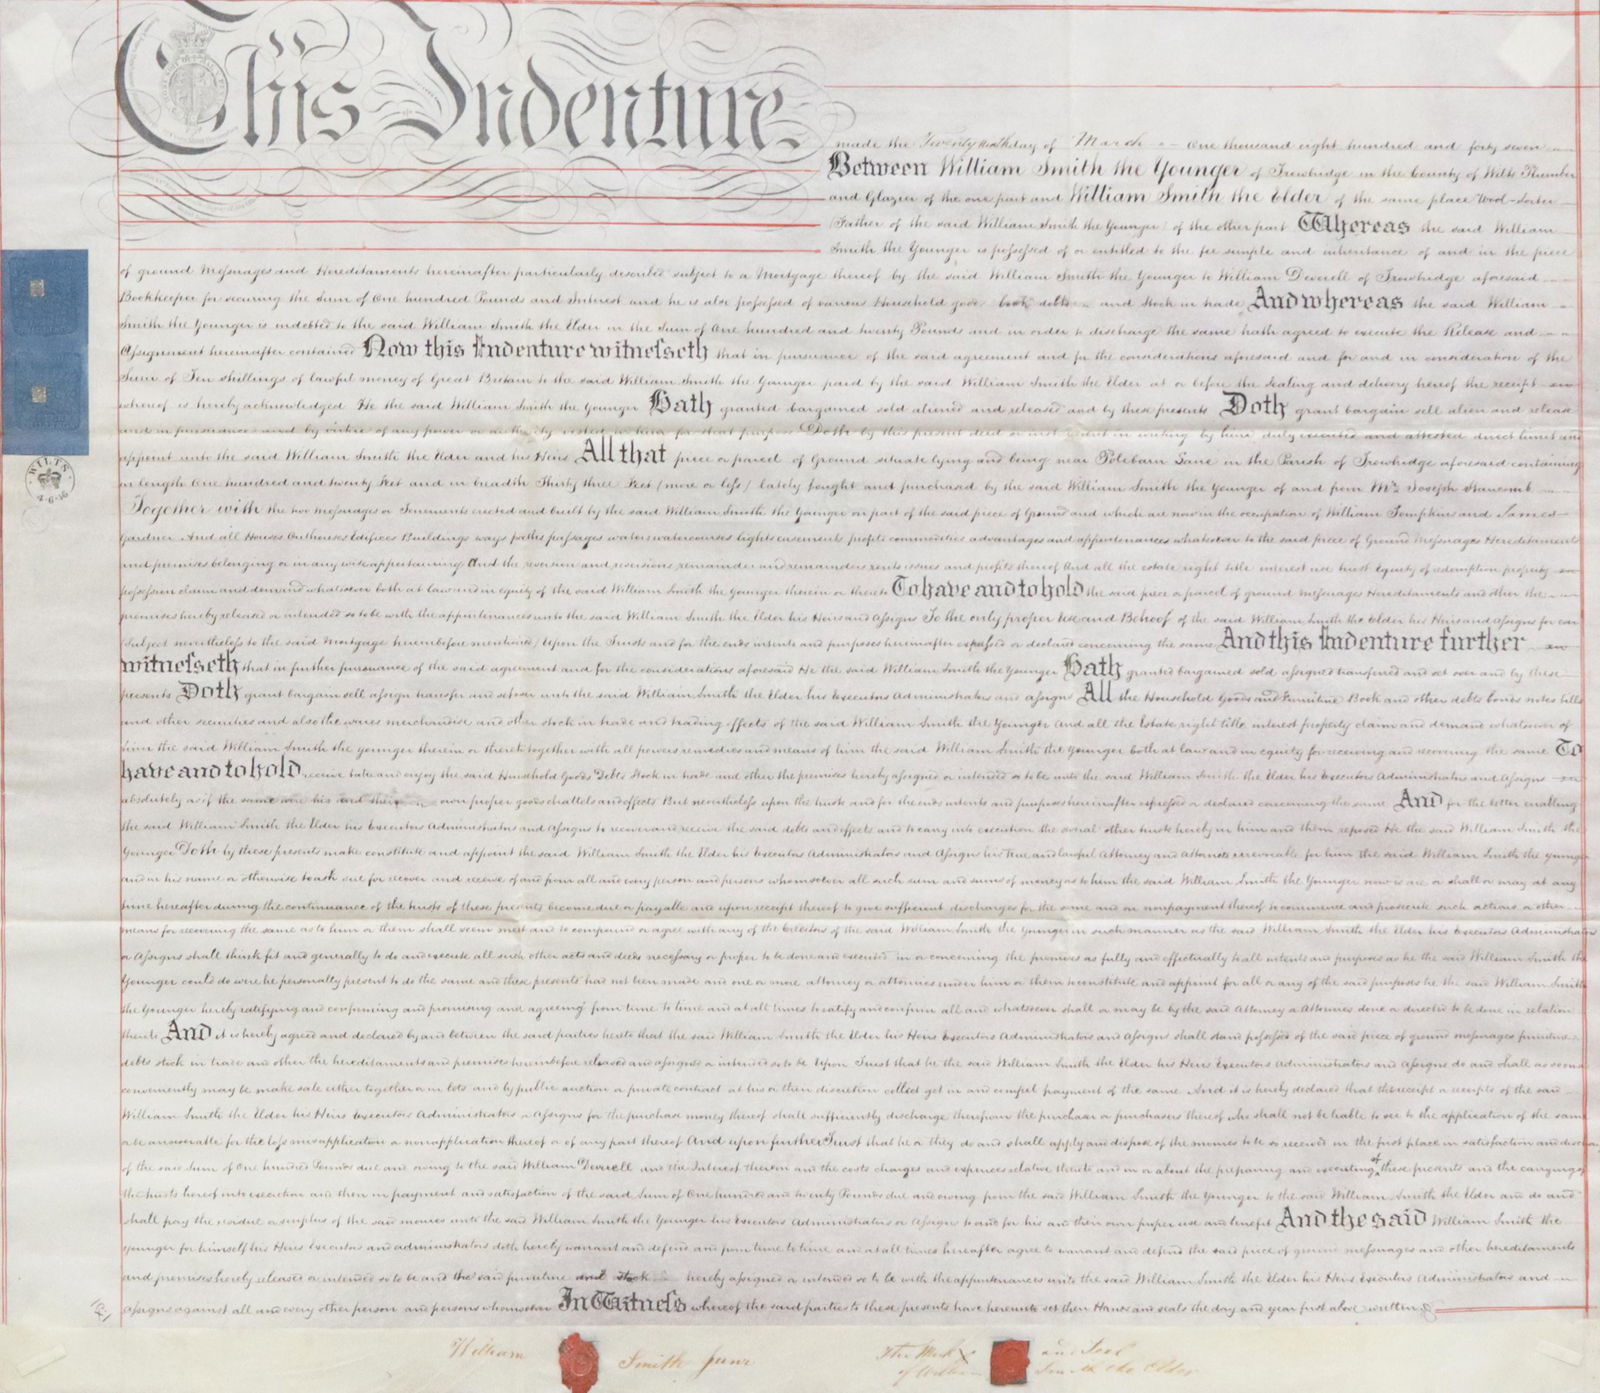 This Indenture
made the Twenty ninth day of March One thousand eight hundred and forty seven
Between William Smith the Younger of Trowbridge in the County of Wilts Plumber
and Glazier of the one part and William Smith the Elder of the same place Wool-Sorter
(Father of the said William Smith the Younger) of the other part Whereas the said William
Smith the Younger is possessed of or entitled to the fee simple and inheritance of and in the piece
of ground Messuages and Hereditaments hereinafter particularly described subject to a Mortgage thereof by the said William Smith the Younger to William Deverell of Trowbridge aforesaid
Bookkeeper for securing the Sum of One hundred Pounds and Interest and he is also possessed of various Household goods book debts and Stock in trade And whereas the said William
Smith the Younger is indebted to the said William Smith the Elder in the Sum of One hundred and twenty Pounds and in order to discharge the same hath agreed to execute the Release and
Assignment hereinafter contained Now this Indenture witnesseth that in pursuance of the said agreement and for the considerations aforesaid and for and in consideration of the
Sum of Ten shillings of lawful money of Great Britain to the said William Smith the Younger paid by the said William Smith the Elder at or before the sealing and delivery hereof the receipt
whereof is hereby acknowledged He the said William Smith the Younger Hath granted bargained sold aliened and released and by these presents Doth grant bargain sell alien and release
and in pursuance and by virtue of any power or authority vested in him for that purpose Doth by this present deed or instrument in writing by him duly executed and attested direct limit and
appoint unto the said William Smith the Elder and his Heirs All that piece or parcel of Ground situate lying and being near Polebarn Lane in the Parish of Trowbridge aforesaid containing
in length One hundred and twenty feet and in breadth Thirty three feet (more or less) lately bought and purchased by the said William Smith the Younger of and from Mr. Joseph Stancomb
Together with the two messuages or Tenements erected and built by the said William Smith the Younger on part of the said piece of Ground and which are now in the occupation of William Tompkins and James
Gardner And all Houses Outhouses Edifices Buildings ways paths passages waters watercourses lights easements profits commodities advantages and appurtenances whatsoever to the said piece of Ground Messuages Hereditaments
and premises belonging or in any wise appertaining And the reversion and reversions remainder and remainders rents issues and profits thereof And all the estate right title interest use trust equity of redemption property
possession claim and demand whatsoever both at law and in equity of the said William Smith the Younger therein or thereto To have and to hold the said piece or parcel of ground messuages Hereditaments and other the
premises hereby released or intended so to be with the appurtenances unto the said William Smith the Elder his Heirs and Assigns To the only proper Use and Behoof of the said William Smith the Elder his Heirs and Assigns for ever
(Subject nevertheless to the said Mortgage hereinbefore mentioned) Upon the Trusts and for the ends intents and purposes hereinafter expressed or declared concerning the same And this Indenture further
witnesseth that in further pursuance of the said agreement and for the considerations aforesaid He the said William Smith the Younger Hath granted bargained sold assigned transferred and set over and by these
presents Doth grant bargain sell assign transfer and set over unto the said William Smith the Elder his Executors Administrators and assigns All the Household Goods and Furniture Book and other debts bonds notes bills
and other securities and also the wares merchandise and other stock in trade and trading effects of the said William Smith the Younger And all the Estate right title interest property claim and demand whatsoever of
him the said William Smith the younger therein or thereto together with all powers remedies and means of him the said William Smith the Younger both at law and in equity for receiving and recovering the same To
have and to hold receive take and enjoy the said Household Goods Debts Stock in trade and other the premises hereby assigned or intended so to be unto the said William Smith the Elder his Executors Administrators and Assigns
absolutely as if the same were his and their own proper goods chattels and effects But nevertheless upon the trusts and for the ends intents and purposes hereinafter expressed or declared concerning the same And for the better enabling
the said William Smith the Elder his Executors Administrators and Assigns to recover and receive the said debts and effects and to carry into execution the several other trusts hereby in him and them reposed He the said William Smith the
Younger Doth by these presents make constitute and appoint the said William Smith the Elder his Executors Administrators and Assigns his true and lawful Attorney and Attornies irrevocable for him the said William Smith the Younger
and in his name or otherwise to ask sue for recover and receive of and from all and every person and persons whomsoever all such sum and sums of money as to him the said William Smith the Younger now is are or shall or may at any
time hereafter during the continuance of the trusts of these presents become due or payable and upon receipt thereof to give sufficient discharges for the same and on nonpayment thereof to commence and prosecute such actions or other
means for recovering the same as to him or them shall seem meet and to compound or agree with any of the Creditors of the said William Smith the Younger in such manner as the said William Smith the Elder his Executors Administrators
or Assigns shall think fit and generally to do and execute all such other acts and deeds necessary or proper to be done and executed in or concerning the premises as fully and effectually to all intents and purposes as he the said William Smith the
Younger could do were he personally present to do the same and these presents had not been made and one or more attorney or attornies under him or them to constitute and appoint for all or any of the said purposes he the said William Smith
the Younger hereby ratifying and confirming and promising and agreeing from time to time and at all times to ratify and confirm all and whatsoever shall or may be by the said Attorney or Attornies done or directed to be done in relation
thereto And it is hereby agreed and declared by and between the said parties hereto that the said William Smith the Elder his Heirs Executors Administrators and Assigns shall stand possessed of the said piece of ground messuages furniture
debts stock in trade and other the hereditaments and premises hereinbefore released and assigned or intended so to be Upon Trust that he the said William Smith the Elder his Heirs Executors Administrators and Assigns do and shall as soon as
conveniently may be make sale either together or in lots and by public auction or private contract at his or their discretion collect get in and compel payment of the same And it is hereby declared that the receipt or receipts of the said
William Smith the Elder his Heirs Executors Administrators or Assigns for the purchase money thereof shall sufficiently discharge therefrom the purchaser or purchasers thereof who shall not be liable to see to the application of the same
or be answerable for the loss misapplication or nonapplication thereof or of any part thereof And upon further Trust that he or they do and shall apply and dispose of the monies to be so received in the first place in satisfaction and discharge
of the said Sum of One hundred Pounds due and owing to the said William Deverell and the Interest thereon and the costs charges and expences relative thereto and in or about the preparing and executing of these presents and the carrying of
the trusts hereof into execution and then in payment and satisfaction of the said Sum of One hundred and twenty Pounds due and owing from the said William Smith the Younger to the said William Smith the Elder and do and
shall pay the residue or surplus of the said monies unto the said William Smith the Younger his Executors Administrators or Assigns to and for his and their own proper use and benefit And the said William Smith the
Younger for himself his Heirs Executors and administrators doth hereby warrant and defend and from time to time and at all times hereafter agree to warrant and defend the said piece of ground messuages and other hereditaments
and premises hereby released or intended so to be and the said furniture and stock hereby assigned or intended so to be with the appurtenances unto the said William Smith the Elder his Heirs Executors Administrators and
Assigns against all and every other person and persons whomsoever In Witness whereof the said parties to these presents have hereunto set their Hands and seals the day and year first above written
William Smith Junr
The Mark X and Seal
of William Smith the Elder
WILTS
4-6-16